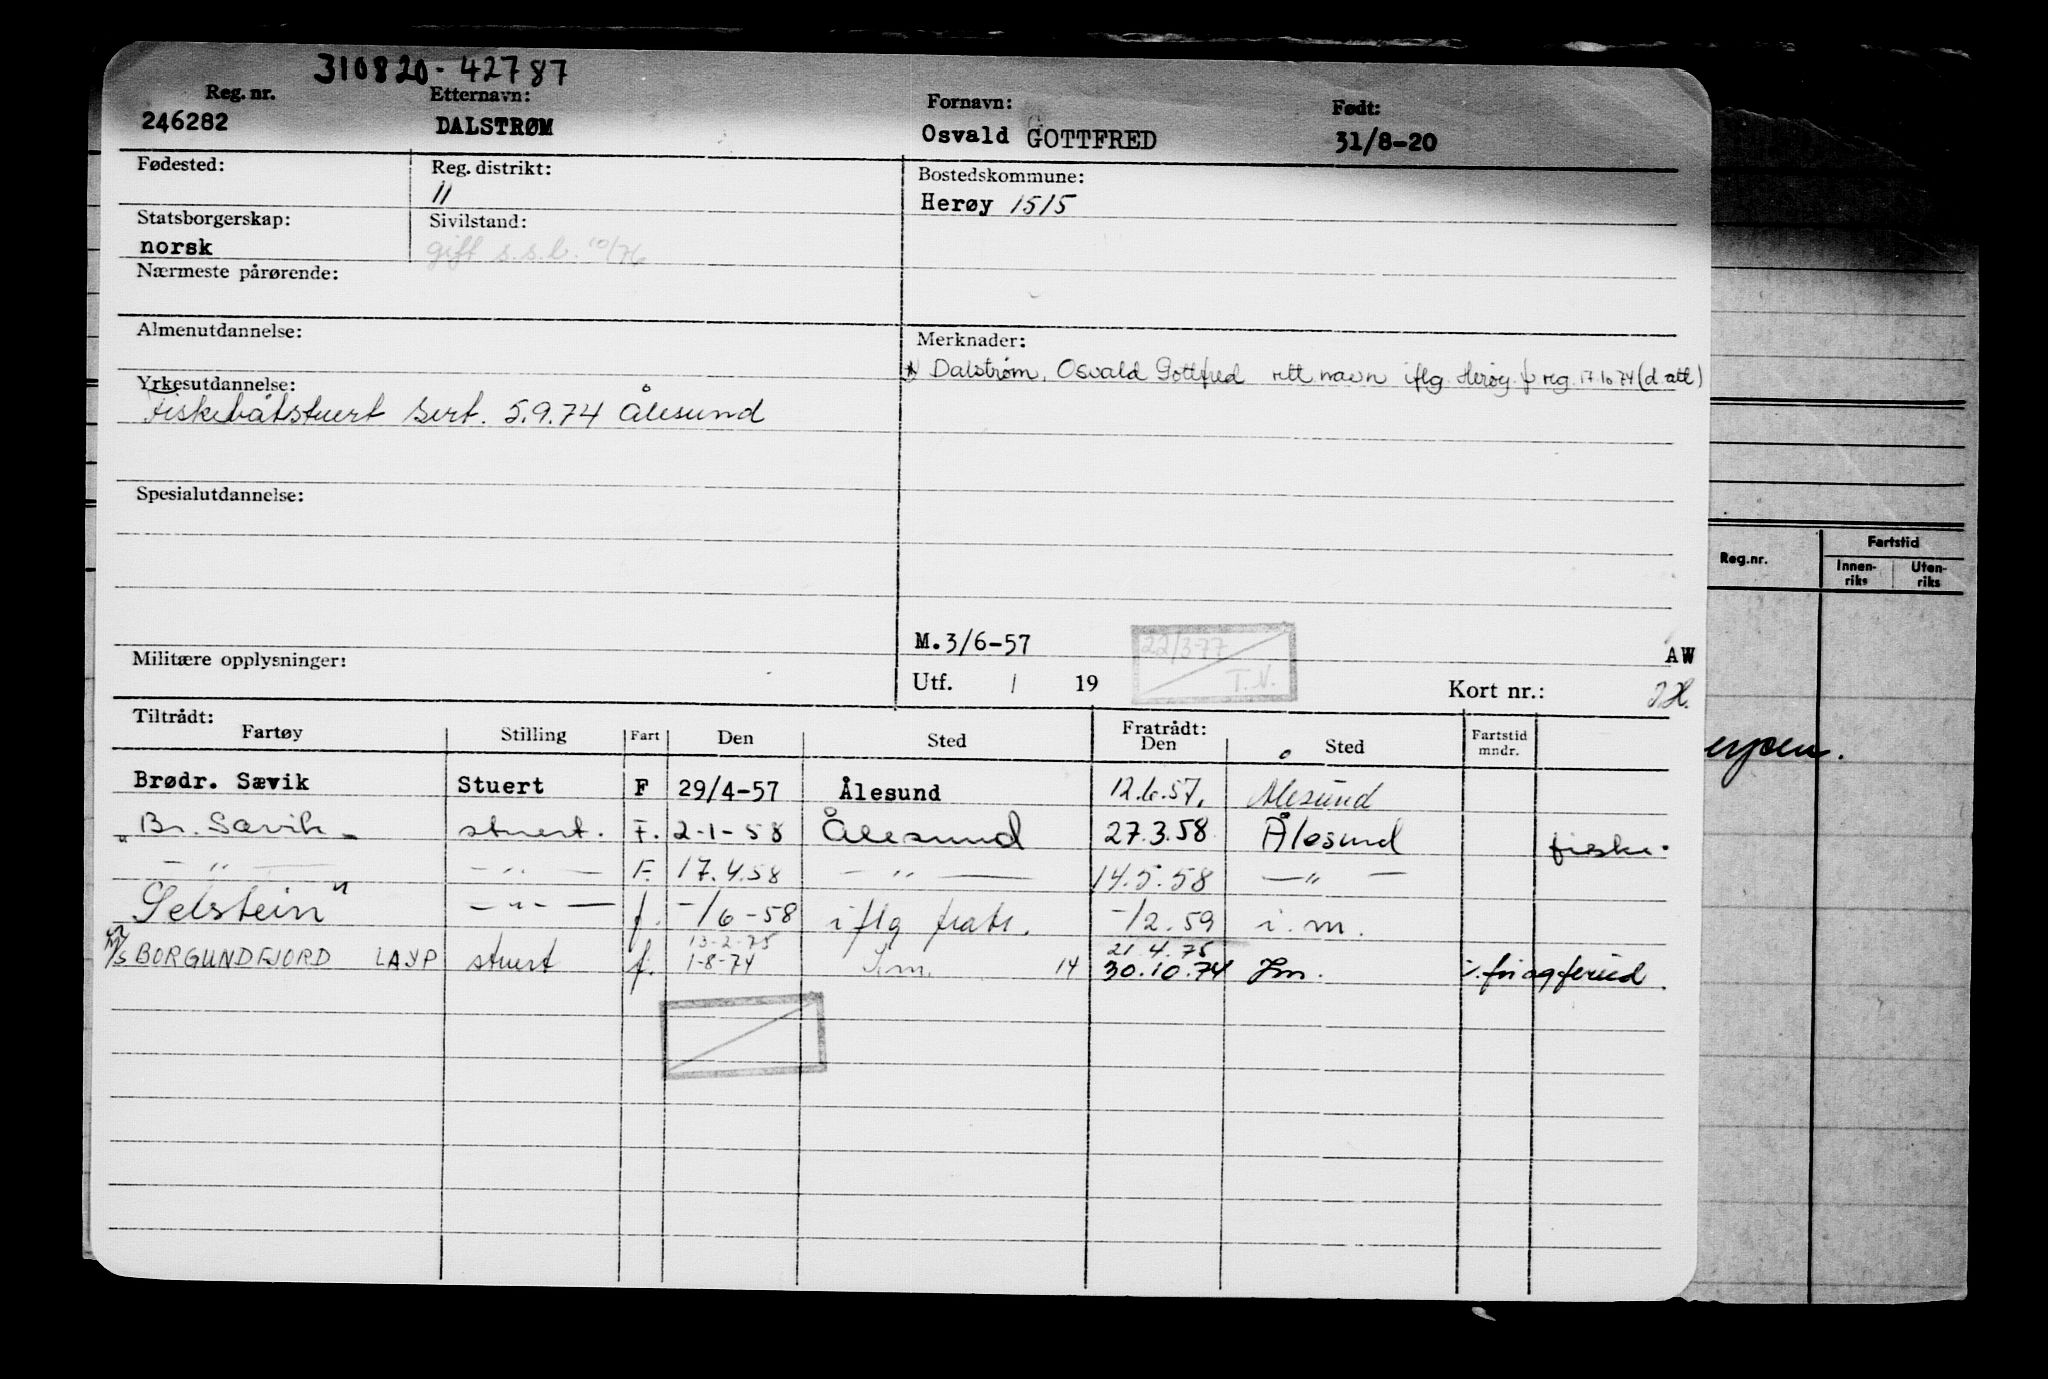 310820-42787
Reg. nr. Etternavn: Fornavn: Født:
246282 DALSTRØM Osvald GOTTFRED 31/8-20
Fødested: Reg. distrikt: Bostedskommune:
11 Herøy 1515
Statsborgerskap: Sivilstand:
norsk gift s.s.b. 10/76
Nærmeste pårørende:
Almenutdannelse: Merknader:
Dalstrøm, Osvald Gottfred rett navn iflg. Herøy f reg. 17.10.74 (d. att)
Yrkesutdannelse:
Fiskebåtstuert sert. 5.9.74 Ålesund
Spesialutdannelse:
M.3/6-57 22/3-77 AW
Militære opplysninger: T.N.
Utf. / 19 Kort nr.:
Tiltrådt: Fratrådt:
Fartøy Stilling Fart Den Sted Den Sted Fartstid mndr.
Brødr. Sævik Stuert F 29/4-57 Ålesund 12.6.57. Ålesund
"Br. Sævik" stuert. F. 2-1-58 Ålesund 27.3.58 Ålesund fiske.
— " — — " — F. 17.4.58 — " — 14.5.58 — " —
Selstein" — " — f. -/6-58 iflg fratr. -/2.59 i.m.
13-2-75 21.4.75
M/S BORGUNDFJORD LAYP stuert f. 1-8-74 I.m. 14 30.10.74 Im. v. fri og feried.
Reg.nr. Fartstid
Innen-riks Uten-riks